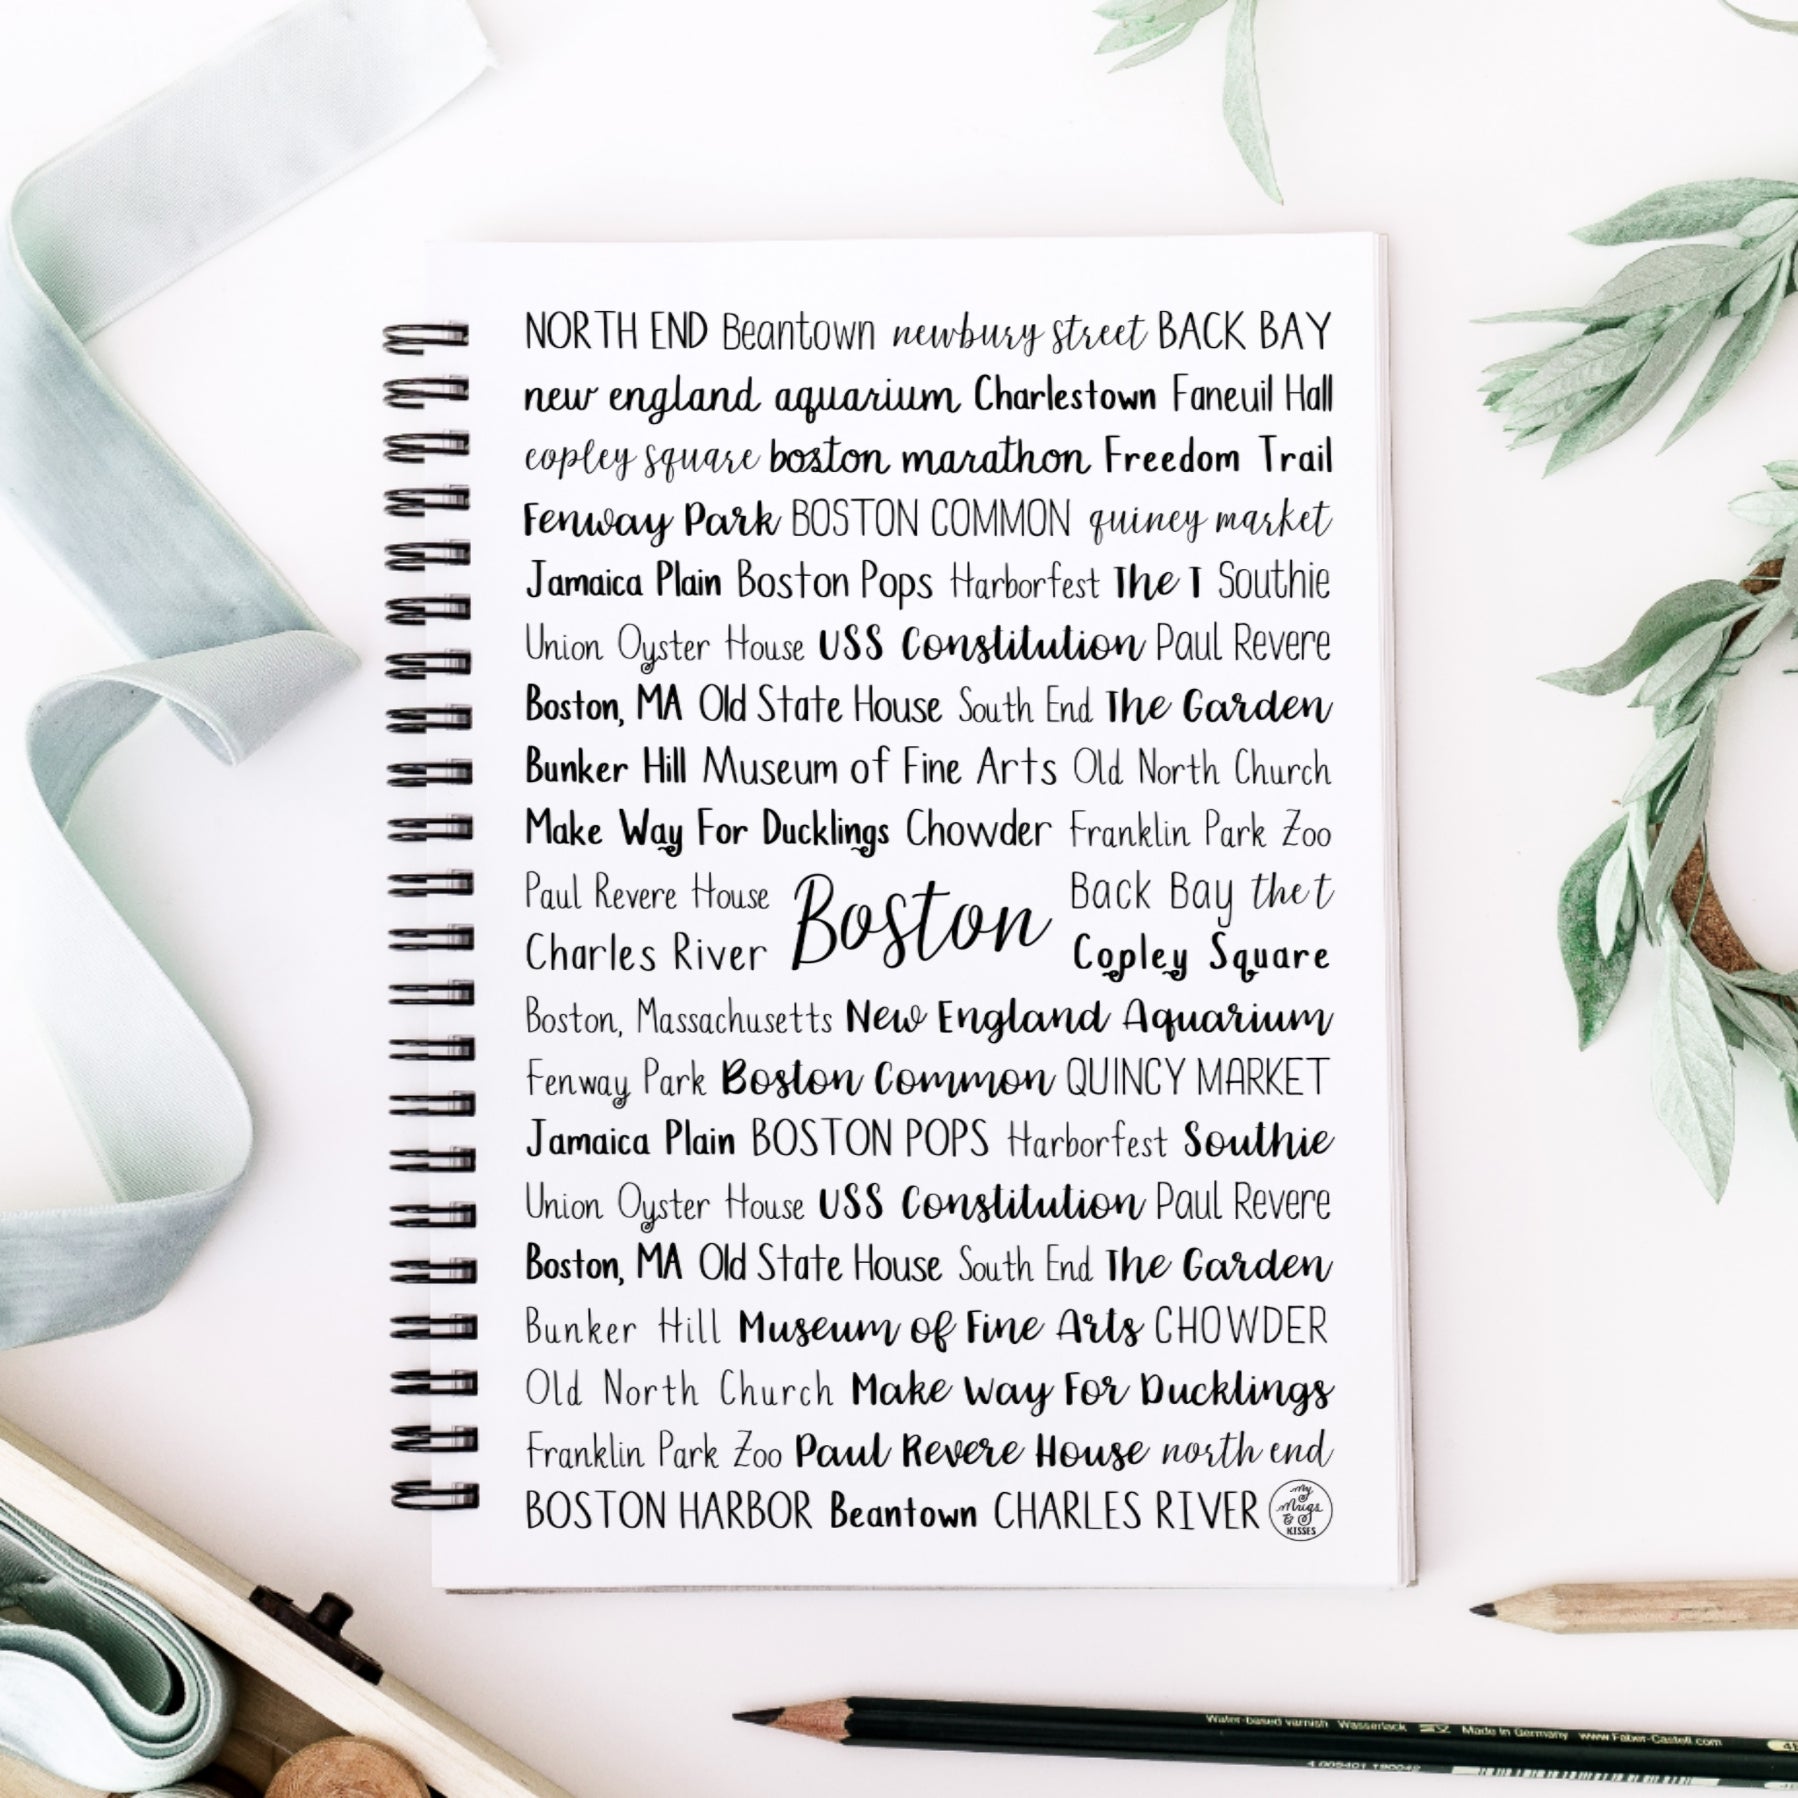 NORTH END Beantown newbury street BACK BAY
new england aquarium Charlestown Faneuil Hall
copley square boston marathon Freedom Trail
Fenway Park BOSTON COMMON quincy market
Jamaica Plain Boston Pops Harborfest The T Southie
Union Oyster House USS Constitution Paul Revere
Boston, MA Old State House South End The Garden
Bunker Hill Museum of Fine Arts Old North Church
Make Way For Ducklings Chowder Franklin Park Zoo
Paul Revere House
Charles River
Boston
Back Bay the t
Copley Square
Boston, Massachusetts New England Aquarium
Fenway Park Boston Common QUINCY MARKET
Jamaica Plain BOSTON POPS Harborfest Southie
Union Oyster House USS Constitution Paul Revere
Boston, MA Old State House South End The Garden
Bunker Hill Museum of Fine Arts CHOWDER
Old North Church Make Way For Ducklings
Franklin Park Zoo Paul Revere House north end
BOSTON HARBOR Beantown CHARLES RIVER
My
Mugs
&
KISSES
Water-based varnish Wasserlack Made in Germany www.Faber-Castell.com
4 005401 190042